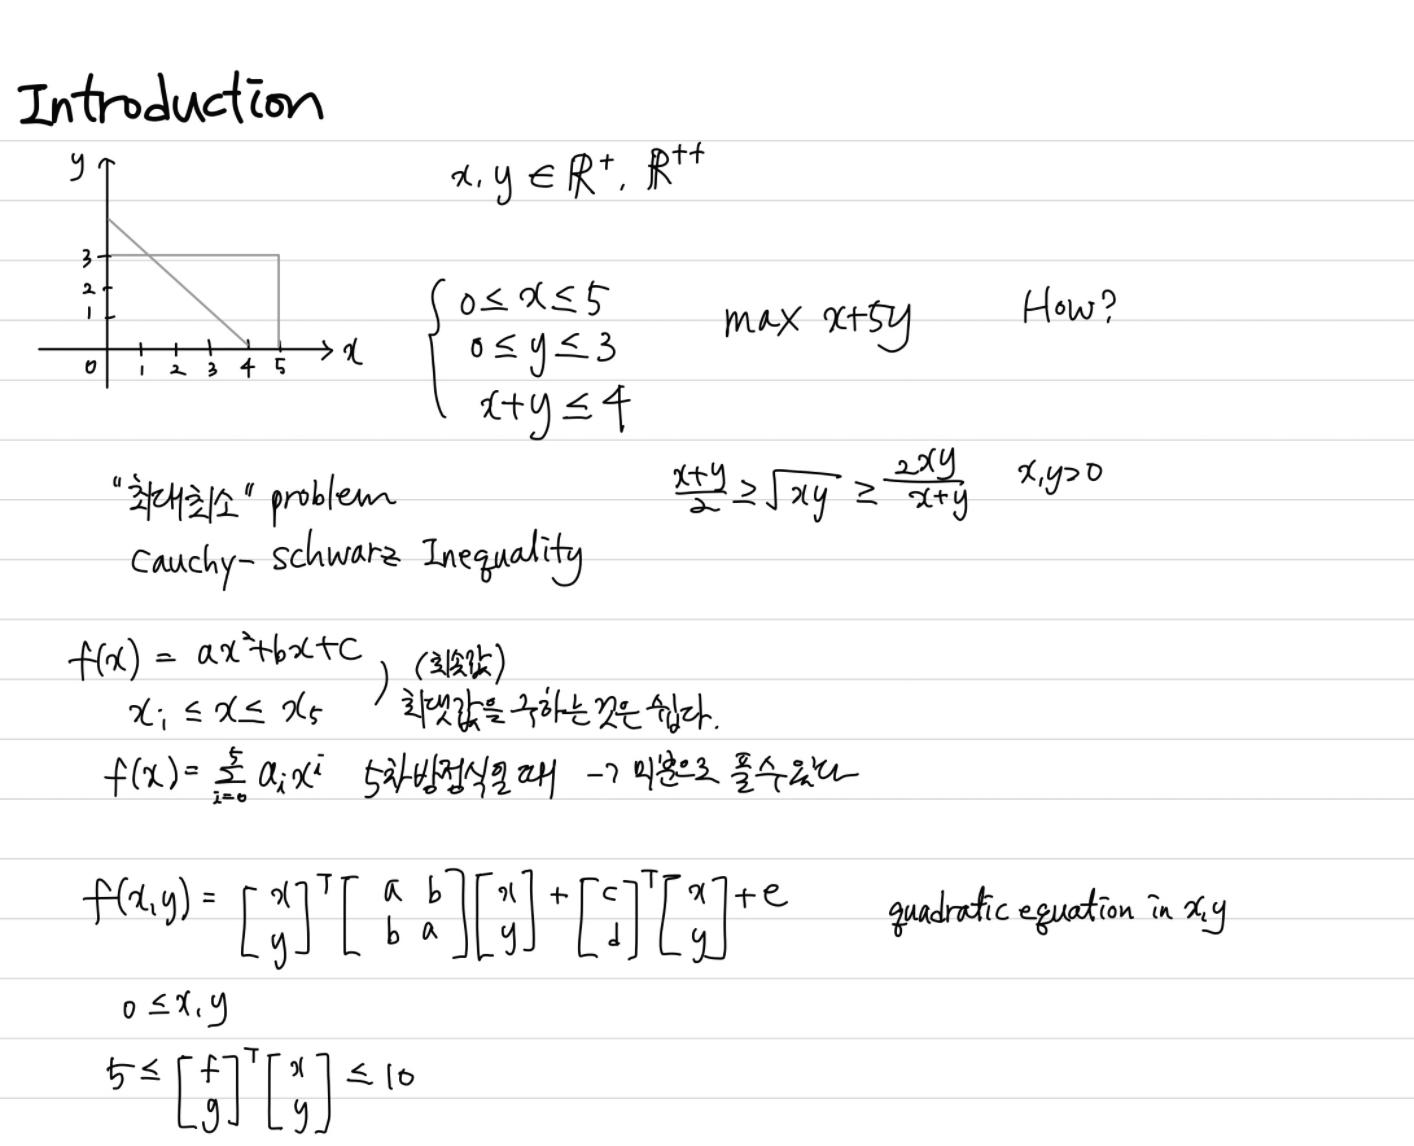 Introduction
y
3
2
1
0 1 2 3 4 5 x
x, y ∈ ℝ⁺, ℝ⁺⁺
0 ≤ x ≤ 5
0 ≤ y ≤ 3
x+y ≤ 4
max x+5y
How?
"최대최소" problem
Cauchy- schwarz Inequality
(x+y)/2 ≥ √(xy) ≥ 2xy/(x+y) x,y>0
f(x) = ax²+bx+c
xᵢ ≤ x ≤ x₅
) (최솟값)
최댓값을 구하는 것은 쉽다.
f(x) = ∑_{i=0}^{5} aᵢxⁱ 5차방정식일 때 -> 미분으로 풀 수 있다
f(x,y) = [x y]ᵀ [a b b a] [x y] + [c d]ᵀ [x y] + e quadratic equation in x,y
0 ≤ x, y
5 ≤ [f g]ᵀ [x y] ≤ 10